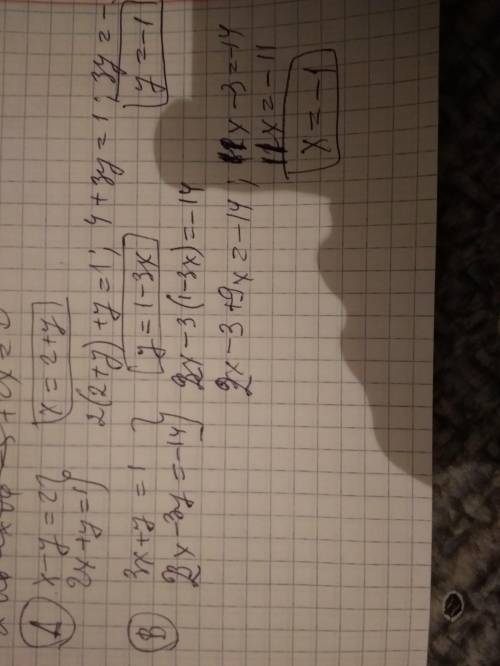 A x - y = 2 } x = 2 + y
2x + y = 1 } 2(2+y) + y = 1; 4 + 3y = 1; 3y = -
y = -1
B 3x + y = 1 } y = 1 - 3x
2x - 3y = -14 } 2x - 3(1-3x) = -14
2x - 3 + 9x = -14; 11x - 3 = -14
11x = -11
x = -1